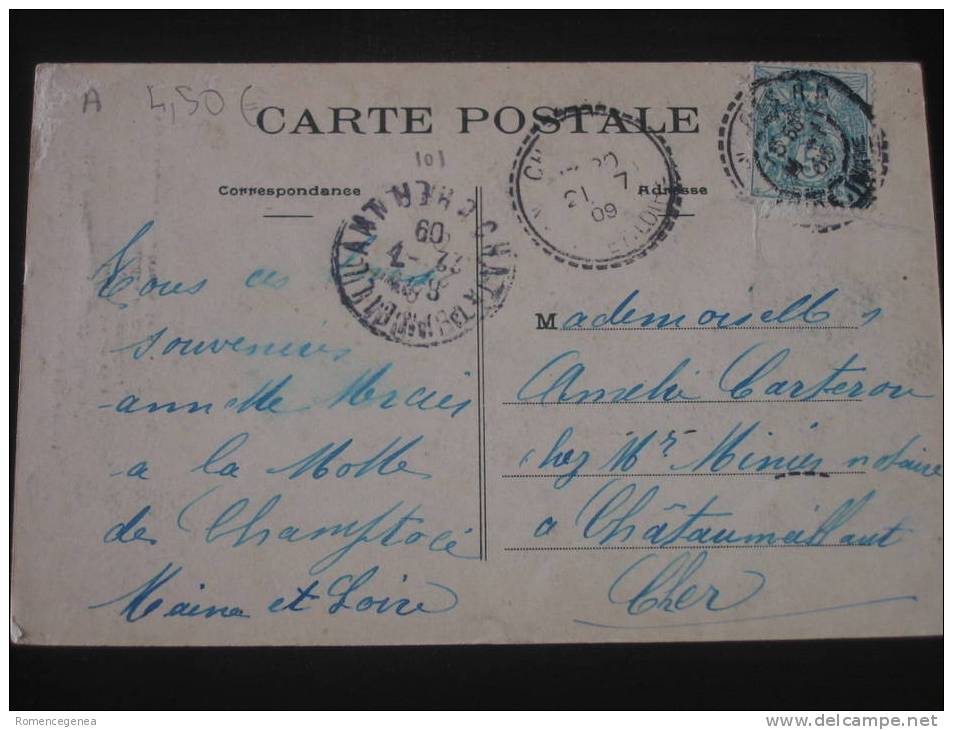 A 4,50 €
CARTE POSTALE
101
Correspondance
Adresse
CHATEAUMEILLANT CHER
22 - 7
09
21 7
09
ET-LOIRE
5
Tous ces
souvenirs
a la Motte
de Champtocé
Maine et Loire
Mademoiselle
Amélie Carteron
chez Mr Minier notaire
a Châteaumeillant
Cher
Romencegenea
delcampe.net